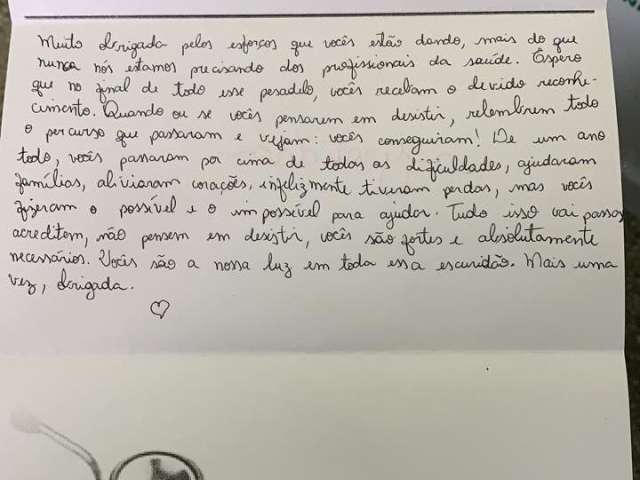 Muito obrigada pelos esforços que vocês estão dando, mais do que
nunca nós estamos precisando dos profissionais da saúde. Espero
que no final de todo esse pesadelo, vocês recebam o devido reconhe-
cimento. Quando ou se vocês pensarem em desistir, relembrem todo
o percurso que passaram e vejam: vocês conseguiram! De um ano
todo, vocês passaram por cima de todas as dificuldades, ajudaram
famílias, aliviaram corações, infelizmente tiveram perdas, mas vocês
fizeram o possível e o impossível para ajudar. Tudo isso vai passar
acreditem, não pensem em desistir, vocês são fortes e absolutamente
necessários. Vocês são a nossa luz em toda essa escuridão. Mais uma
vez, obrigada.